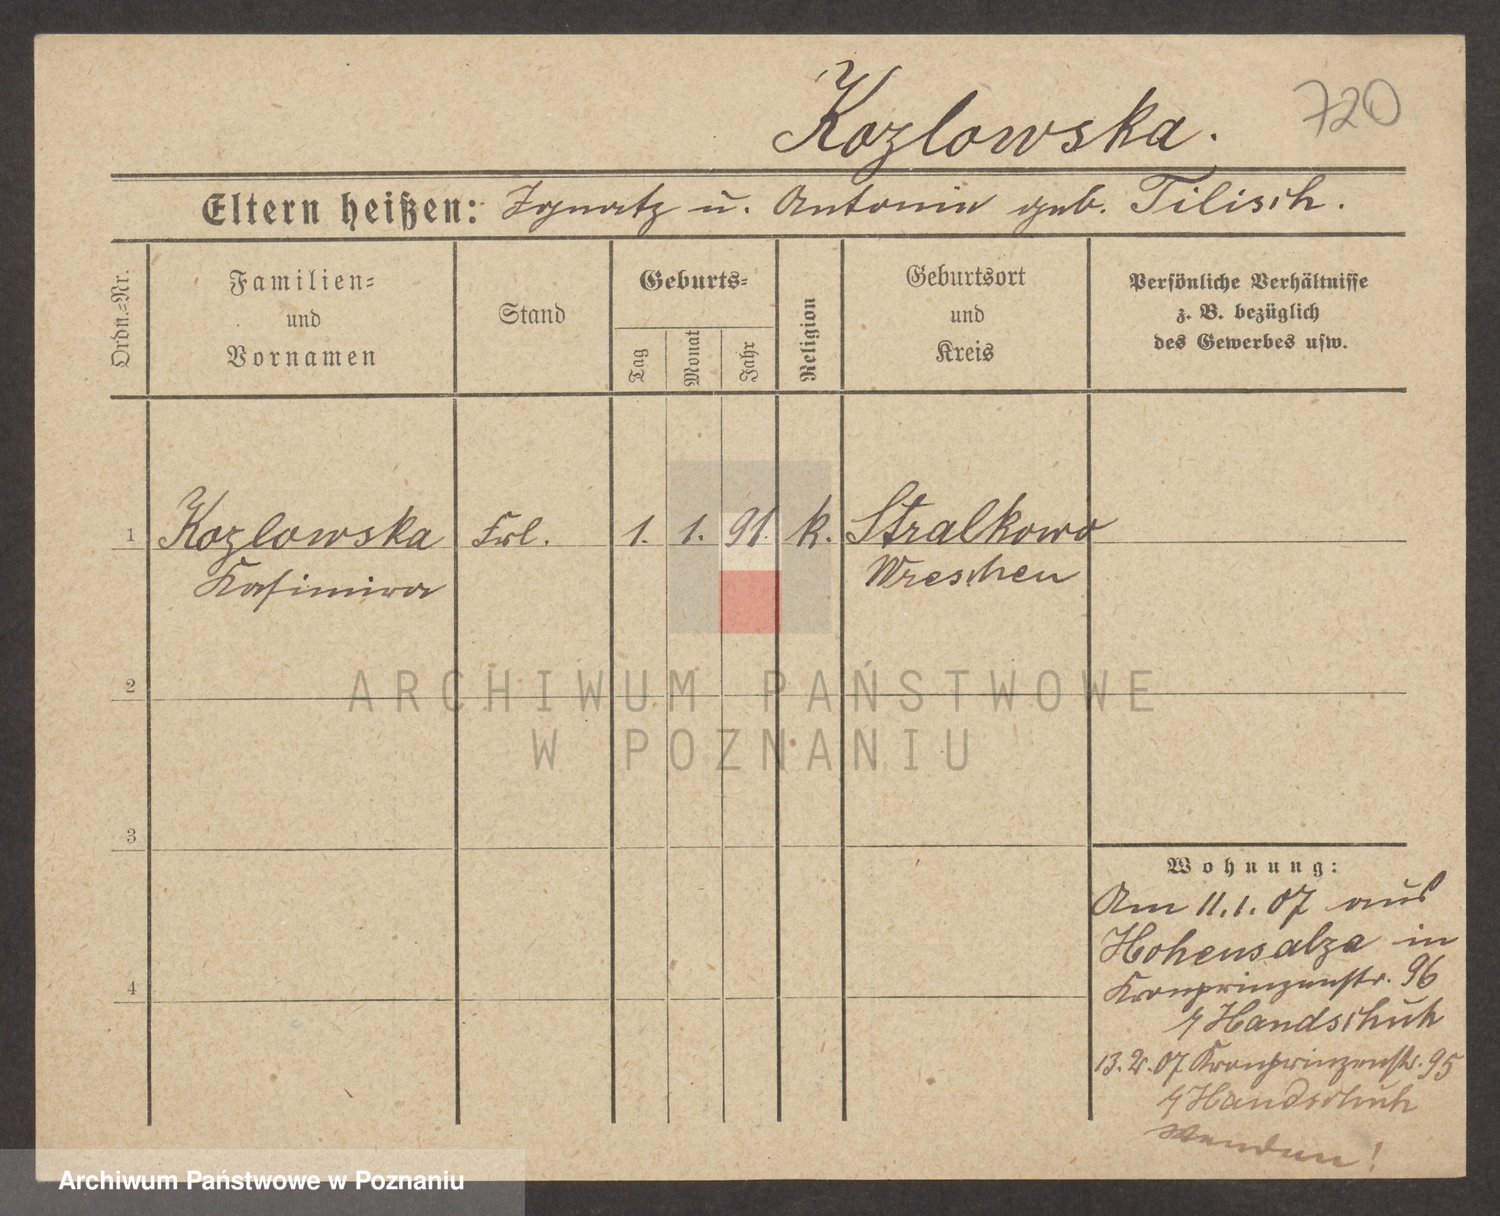 720
Kozlowska.
Eltern heißen: Ignatz u. Antonie geb. Tilisch.
Ordn.-Nr.
Familien-
und
Vornamen
Stand
Geburts-
Tag
Monat
Jahr
Religion
Geburtsort
und
Kreis
Persönliche Verhältnisse
z. B. bezüglich
des Gewerbes usw.
1 Kozlowska Frl. 1. 1. 91. k. Stralkowo
Kasimira Wreschen
2
3
4
Wohnung:
Am 11.1.07 aus
Hohensalza in
Kronprinzenstr. 96
Handschuh
13.2.07 Kronprinzenstr. 95
Handschuh
wenden!
ARCHIWUM PAŃSTWOWE
W POZNANIU
Archiwum Państwowe w Poznaniu